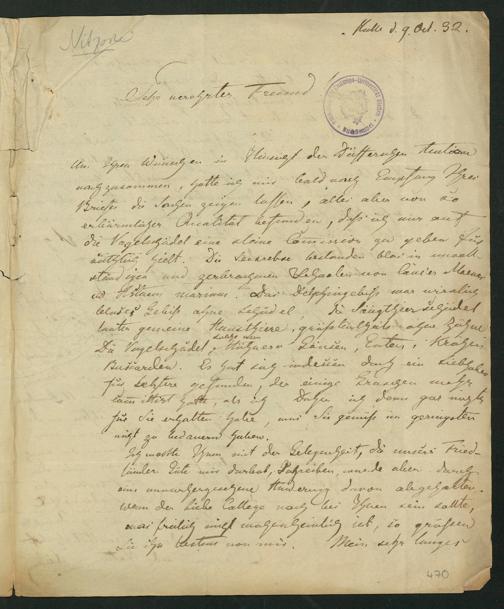 Nitzsch
Halle d. 9. Oct. 32.
Sehr verehrter Freund
Um Ihren Wünschen in Hinsicht der Düfferschen Auction
nachzukommen, hatte ich mir bald nach Empfang Ihres
Briefes die Sachen zeigen lassen, alles aber von so
erbärmlicher Qualität befunden, daß ich nur auf
die Vogelschädel eine kleine Commission zu geben für
nützlich hielt. Die Seekrebse bestanden blos in unvoll-
ständigen und zerbrochenen Schaalen von Cancer Maenas
und Astacus marinus. Das Delphingebiß war wirklich
blos Gebiß ohne Schädel, die Säugthierschädel
lauter gemeine Hausthiere, größtentheils ohne Zähne
Die Vogelschädel, solche von Hühnern Gänsen, Enten, Krähen
Bussarden. Es hat sich indessen doch ein Liebhaber
für letztere gefunden, der einige Groschen mehr
als ich Daher ich denn gar nichts
für Sie erhalten habe, was Sie gewiß im geringsten
nicht zu bedauern haben.
Ich wollte Ihnen mit der Gelegenheit, die unser Fried-
länder mir darbot, schreiben, wurde aber durch
eine unvorhergesehene davon abgehalten.
Wenn der liebe College noch bei Ihnen sein sollte,
was freilich nicht wahrscheinlich ist, so grüßen
Sie ihn bestens von mir. Mein sehr langes
470